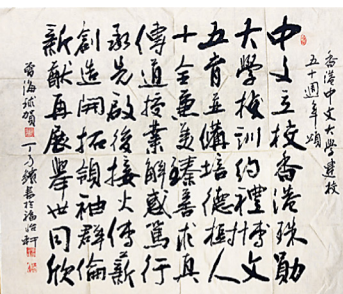 香港中文大學建校
五十週年頌
中文立校香港殊勛
大学校訓約禮博文
五育並講培德樹人
十全兼美臻善求真
傳道授業解惑篤行
承先啟後接火傳薪
創造開拓領袖群倫
新猷再展舉世同欣
海賀
丁乃書於